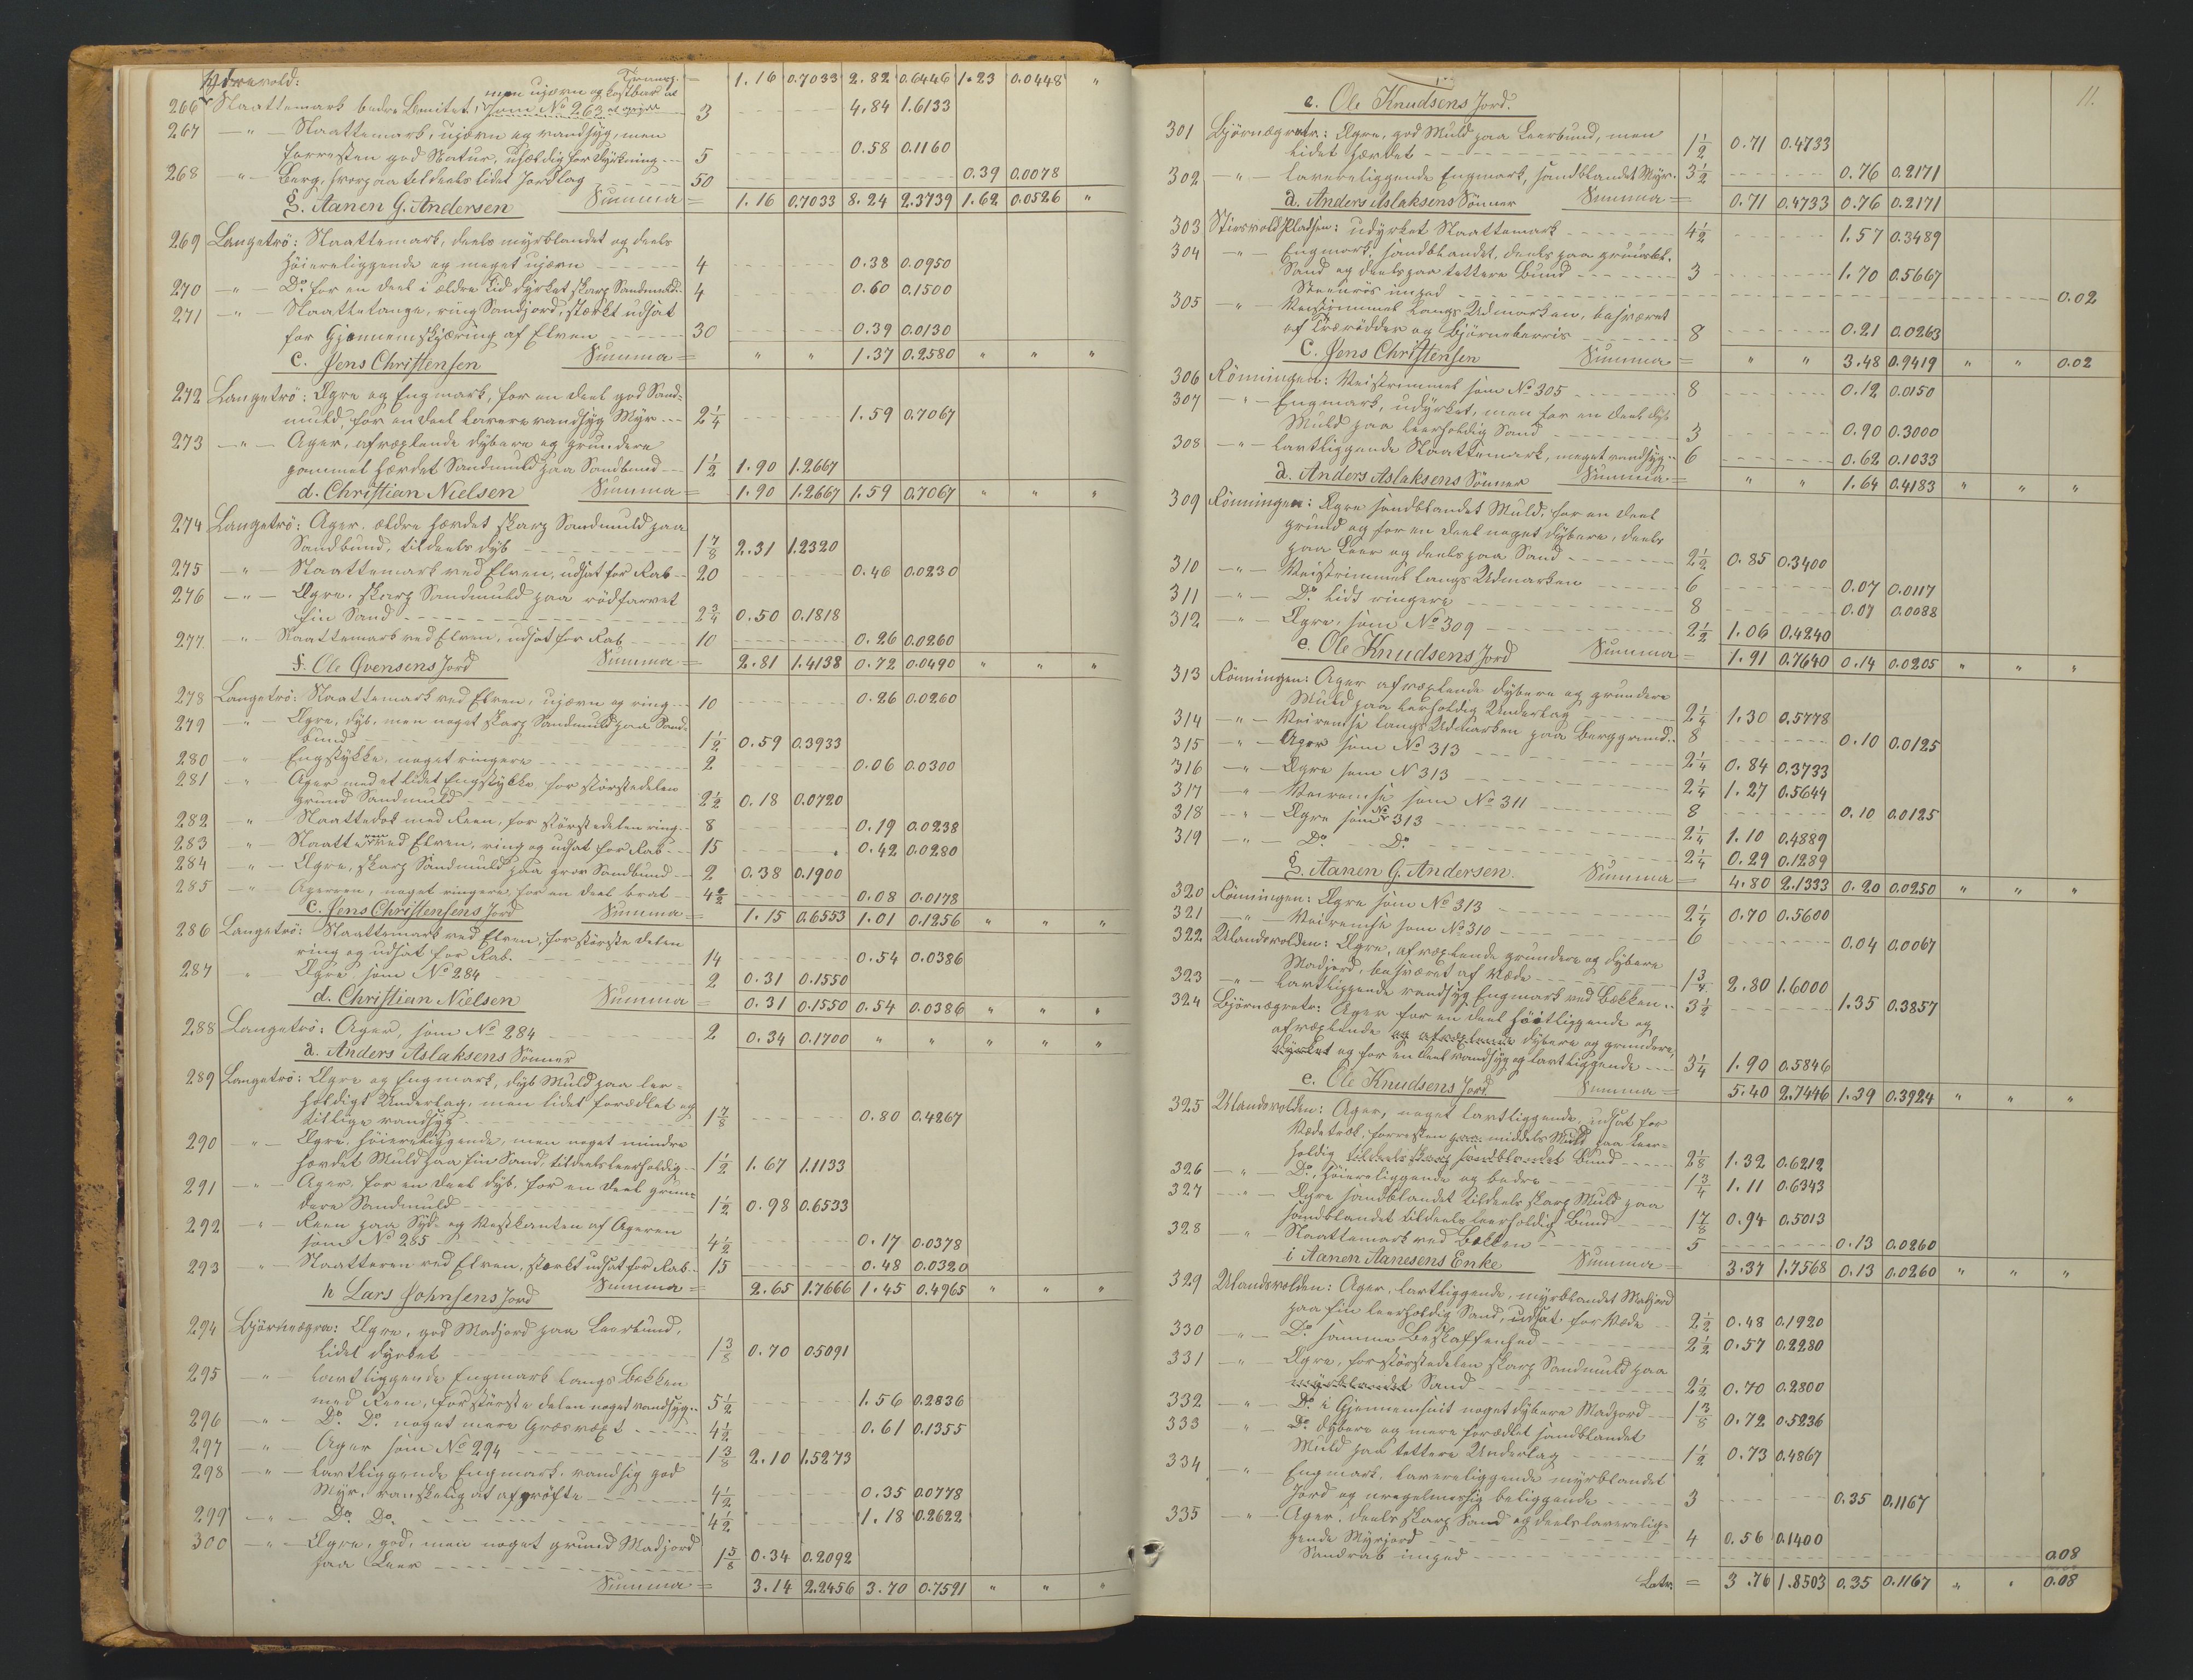 Transp. = 1.16 0.7033 2.82 0.6446 1.23 0.0448 "
266 Slaattemark bedre Bonitet, men ujævn og kostbar at
som No 263 3 4.84 1.6133
267 — " — Slaattemark, ujævn og vandsyg, men
forresten god Natur, uheldig for Dyrkning 5 0.58 0.1160
268 — " — Berg, hvorpaa tildeels lidet Jordlag 50 0.39 0.0078
g. Aanen G. Andersen Summa = 1.16 0.7033 8.24 2.3739 1.62 0.0526 "
269 Langetrö: Slaattemark, deels myrblandet og deels
höiereliggende og meget ujævn 4 0.38 0.0950
270 — " — Do. for en deel i ældre Tid dyrket skarp Sandmuld 4 0.60 0.1500
271 — " — Slaattetange, ring Sandjord, stærkt udsat
for Gjennemskjæring af Elven 30 0.39 0.0130
c. Jens Christensen Summa = " " 1.37 0.2580 " " "
272 Langetrö: Agre og Engmark, for en deel god Sand-
muld, for en deel lavere vandsyg Myr 2 1/4 1.59 0.7067
273 — " — Ager, afvexlende dybere og grundere
gammel hævdet Sandmuld paa Sandbund 1 1/2 1.90 1.2667
d. Christian Nielsen Summa = 1.90 1.2667 1.59 0.7067 " " "
274 Langetrö: Ager, ældre hævdet skarp Sandmuld paa
Sandbund, tildeels dyb 1 7/8 2.31 1.2320
275 — " — Slaattemark ved Elven, udsat for Rab 20 0.46 0.0230
276 — " — Agre, skarp Sandmuld paa rödfarvet
fin Sand 2 3/4 0.50 0.1818
277 — " — Slaattemark ved Elven, udsat for Rab 10 0.26 0.0260
f. Ole Ovensens Jord Summa = 2.81 1.4138 0.72 0.0490 " " "
278 Langetrö: Slaattemark ved Elven, ujævn og ring 10 0.26 0.0260
279 — " — Agre, dyb, men noget skarp Sandmuld paa Sand-
bund 1 1/2 0.59 0.3933
280 — " — Engstykke, noget ringere 2 0.06 0.0300
281 — " — Ager med et lidet Engstykke, for störstedelen
grund Sandmuld 2 1/2 0.18 0.0720
282 — " — Slaattedot med Reen, for störstedelen ring 8 0.19 0.0238
283 — " — Slaatteren ved Elven, ring og udsat for Rab 15 0.42 0.0280
284 — " — Agre, skarp Sandmuld paa grov Sandbund 2 0.38 0.1900
285 — " — Agerreen, noget ringere, for en deel brat 4 1/2 0.08 0.0178
c. Jens Christensens Jord Summa = 1.15 0.6553 1.01 0.1256 " " "
286 Langetrö: Slaattemark ved Elven, for störste delen
ring og udsat for Rab. 14 0.54 0.0386
287 — " — Agre som No 284 2 0.31 0.1550
d. Christian Nielsen Summa = 0.31 0.1550 0.54 0.0386 " " "
288 Langetrö: Ager, som No 284 2 0.34 0.1700 " " " " "
a. Anders Aslaksens Sönner
289 Langetrö: Agre og Engmark, dyb Muld paa leer-
holdigt Underlag, men lidet forædlet og
tillige vandsyg 1 7/8 0.80 0.4267
290 — " — Agre, höiereliggende, men noget mindre
hævdet Muld paa fin Sand, tildeels leerholdig 1 1/2 1.67 1.1133
291 — " — Ager, for en deel dyb, for en deel grun-
dere Sandmuld 1 1/2 0.98 0.6533
292 — " — Reen paa Syd- og Vestkanten af Ageren
som No 285 4 1/2 0.17 0.0378
293 — " — Slaatteren ved Elven, stærkt udsat for Rab 15 0.48 0.0320
h Lars Johnsens Jord Summa = 2.65 1.7666 1.45 0.4965 " " "
294 Björneagra: Agre, god Madjord paa Leerbund,
lidet dyrket 1 3/8 0.70 0.5091
295 — " — lavtliggende Engmark langs Bækken
med Reen, for störste delen noget vandsyg 5 1/2 1.56 0.2836
296 — " — Do. Do. noget mere Græsvæxt 4 1/2 0.61 0.1355
297 — " — Ager som No 294 1 3/8 2.10 1.5273
298 — " — lavtliggende Engmark, vandsyg god
Myr, vanskelig at afgröfte 4 1/2 0.35 0.0778
299 — " — Do. Do. 4 1/2 1.18 0.2622
300 — " — Agre, god, men noget grund Madjord
paa Leer 1 5/8 0.34 0.2092
Summa = 3.14 2.2456 3.70 0.7591 " " "
11.
e. Ole Knudsens Jord.
301 Björnegrötr: Agre, god Muld paa Leerbund, men
lidet hævdet 1 1/2 0.71 0.4733
302 — " — lavereliggende Engmark, sandblandet Myr. 3 1/2 0.76 0.2171
a. Anders Aslaksens Sönner Summa = 0.71 0.4733 0.76 0.2171
303 Stiersvoldpladsen: udyrket Slaattemark 4 1/2 1.57 0.3489
304 — " — Engmark, sandblandet, deels paa gruusbl.
Sand og deels paa tettere Bund 3 1.70 0.5667
Steenrös imged 0.02
305 — " — Veistrimmel langs Udmarken, besværet
af Trærödder og Björneberris 8 0.21 0.0263
c. Jens Christensen Summa = " " 3.48 0.9419 " " 0.02
306 Rönningen: Veistrimmel som No 305 8 0.12 0.0150
307 — " — Engmark, udyrket, men for en deel dyb
Muld paa leerholdig Sand 3 0.90 0.3000
308 — " — lavtliggende Slaattemark, meget vandsyg 6 0.62 0.1033
a. Anders Aslaksens Sönner Summa = " " 1.64 0.4183 " " "
309 Rönningen: Agre sandblandet Muld, for en deel
grund og for en deel noget dybere, deels
paa Leer og deels paa Sand 2 1/2 0.85 0.3400
310 — " — Veistrimmel langs Udmarken 6 0.07 0.0117
311 — " — Do. lidt ringere 8 0.07 0.0088
312 — " — Agre, som No 309 2 1/2 1.06 0.4240
e. Ole Knudsens Jord Summa = 1.91 0.7640 0.14 0.0205 " " "
313 Rönningen: Ager afvexlende dybere og grundere
Muld paa leerholdig Underlag 2 1/4 1.30 0.5778
314 — " — Veiremse langs Udmarken paa Berggrund 8 0.10 0.0125
315 — " — Ager som No 313 2 1/4 0.84 0.3733
316 — " — Agre som N 313 2 1/4 1.27 0.5644
317 — " — Veiremse som No 311 8 0.10 0.0125
318 — " — Agre som No 313 2 1/4 1.10 0.4889
319 — " — Do. Do. 2 1/4 0.29 0.1289
g. Aanen G. Andersen. Summa = 4.80 2.1333 0.20 0.0250 " " "
320 Rönningen: Agre som No 313 2 1/4 0.70 0.5600
321 — " — Veiremse som No 310 6 0.04 0.0067
322 Ulandsvolden: Agre, afvexlende grundere og dybere
Madjord, besværet af Væde 1 3/4 2.80 1.6000
323 — " — lavtliggende vandsyg Engmark ved Bækken 3 1/2 1.35 0.3857
324 Björnegrötr: Ager for en deel höitliggende og
afvexlende og afvexlende dybere og grundere,
dyrket og for en deel vandsyg og lavtliggende 3 1/4 1.90 0.5846
e. Ole Knudsens Jord Summa = 5.40 2.7446 1.39 0.3924 " " "
325 Ulandsvolden: Ager, noget lavtliggende, udsat for
Vædetræk, forresten middels Muld paa leer-
holdig tildeels skarp sandblandet Bund 2 1/8 1.32 0.6212
326 — " — Do., höiereliggende og bedre 1 3/4 1.11 0.6343
327 — " — Agre sandblandet tildeels skarp Muld paa
sandblandet tildeels leerholdig Bund 1 7/8 0.94 0.5013
328 — " — Slaattemark ved Bækken 5 0.13 0.0260
i Aanen Aanesens Enke Summa = 3.37 1.7568 0.13 0.0260 " " "
329 Ulandsvolden: Ager, lavtliggende, myrblandet Madjord
paa fin leerholdig Sand, udsat for Væde 2 1/2 0.48 0.1920
330 — " — Do. samme Beskaffenhed 2 1/2 0.57 0.2280
331 — " — Agre, for störstedelen skarp Sandmuld paa
myrblandet Sand 2 1/2 0.70 0.2800
332 — " — Do. i Gjennemsnit noget dybere Madjord 1 3/8 0.72 0.5236
333 — " — Do. dybere og mere forædlet sandblandet
Muld paa tettere Underlag 1 1/2 0.73 0.4867
334 — " — Engmark, lavereliggende myrblandet
Jord og uregelmessig beliggende 3 0.35 0.1167
335 — " — Ager, deels skarp Sand og deels laverelig-
gende Myrjord 4 0.56 0.1400
Sandrab imged 0.08
Latr. = 3.76 1.8503 0.35 0.1167 " " 0.08